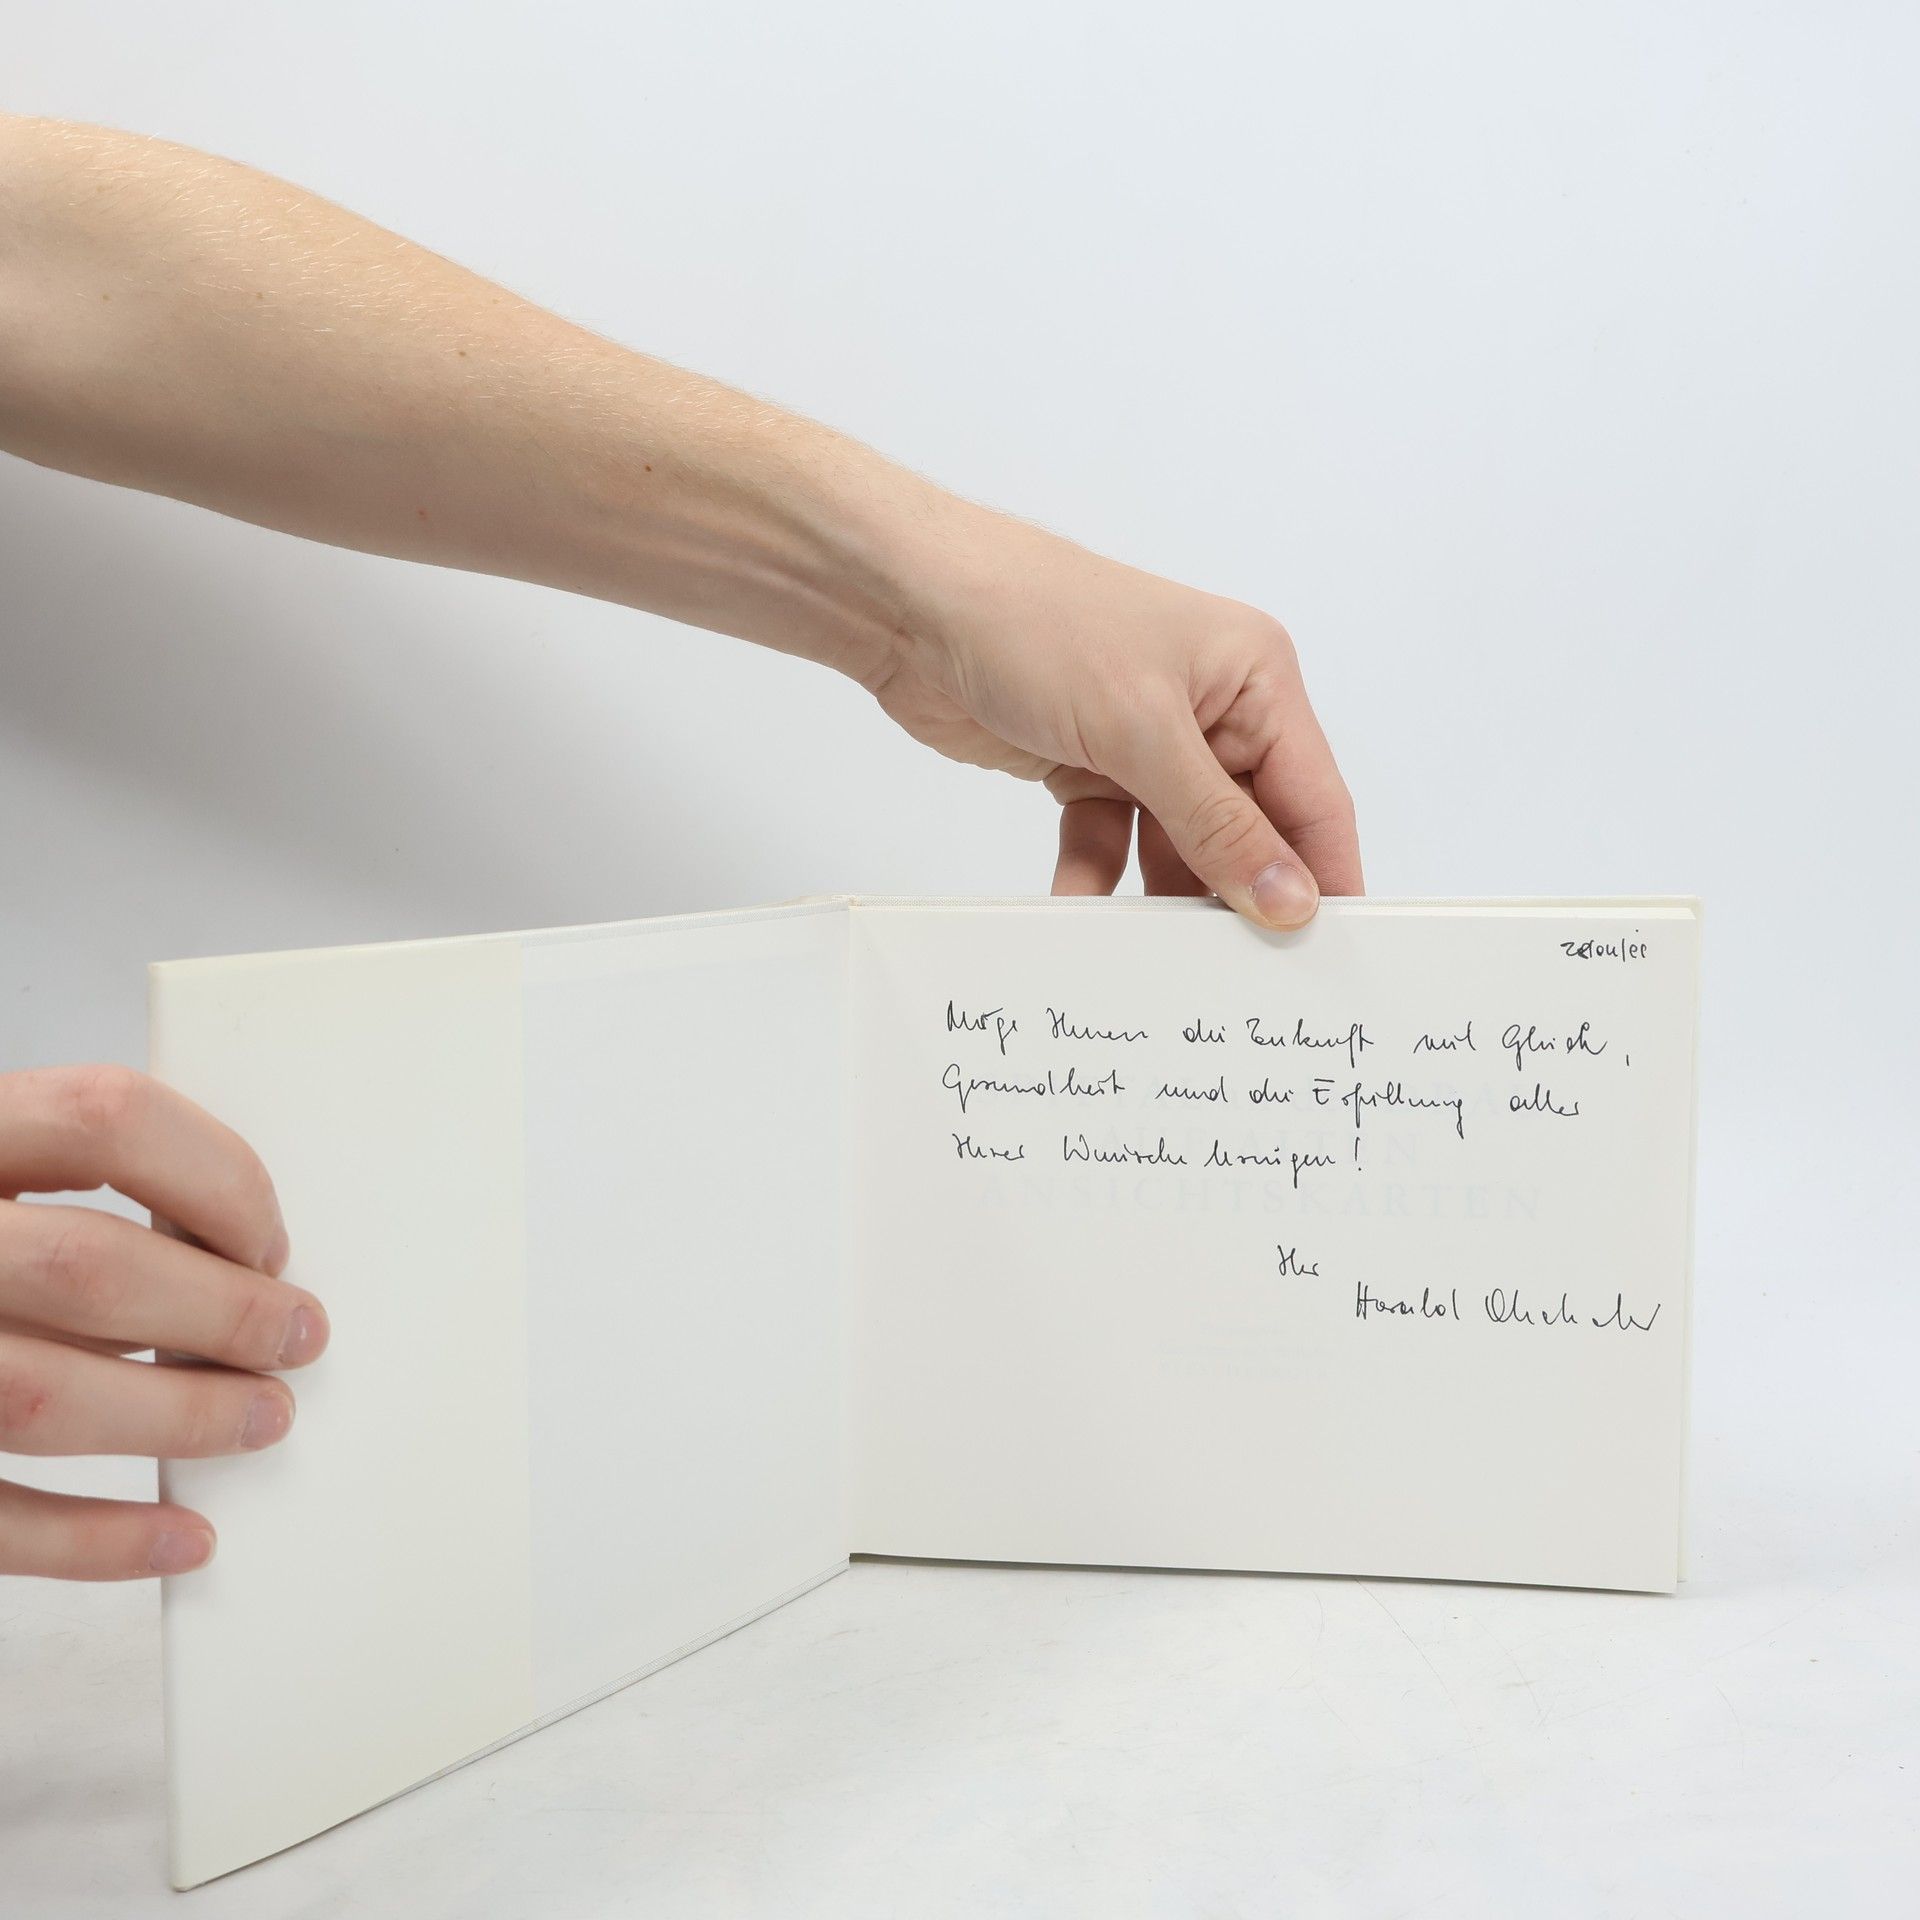 Möge Ihnen die Zukunft viel Glück,
Gesundheit und die Erfüllung aller
Ihrer Wünsche bringen!
AUF ALTEN
ANSICHTSKARTEN
Ihr
Harald